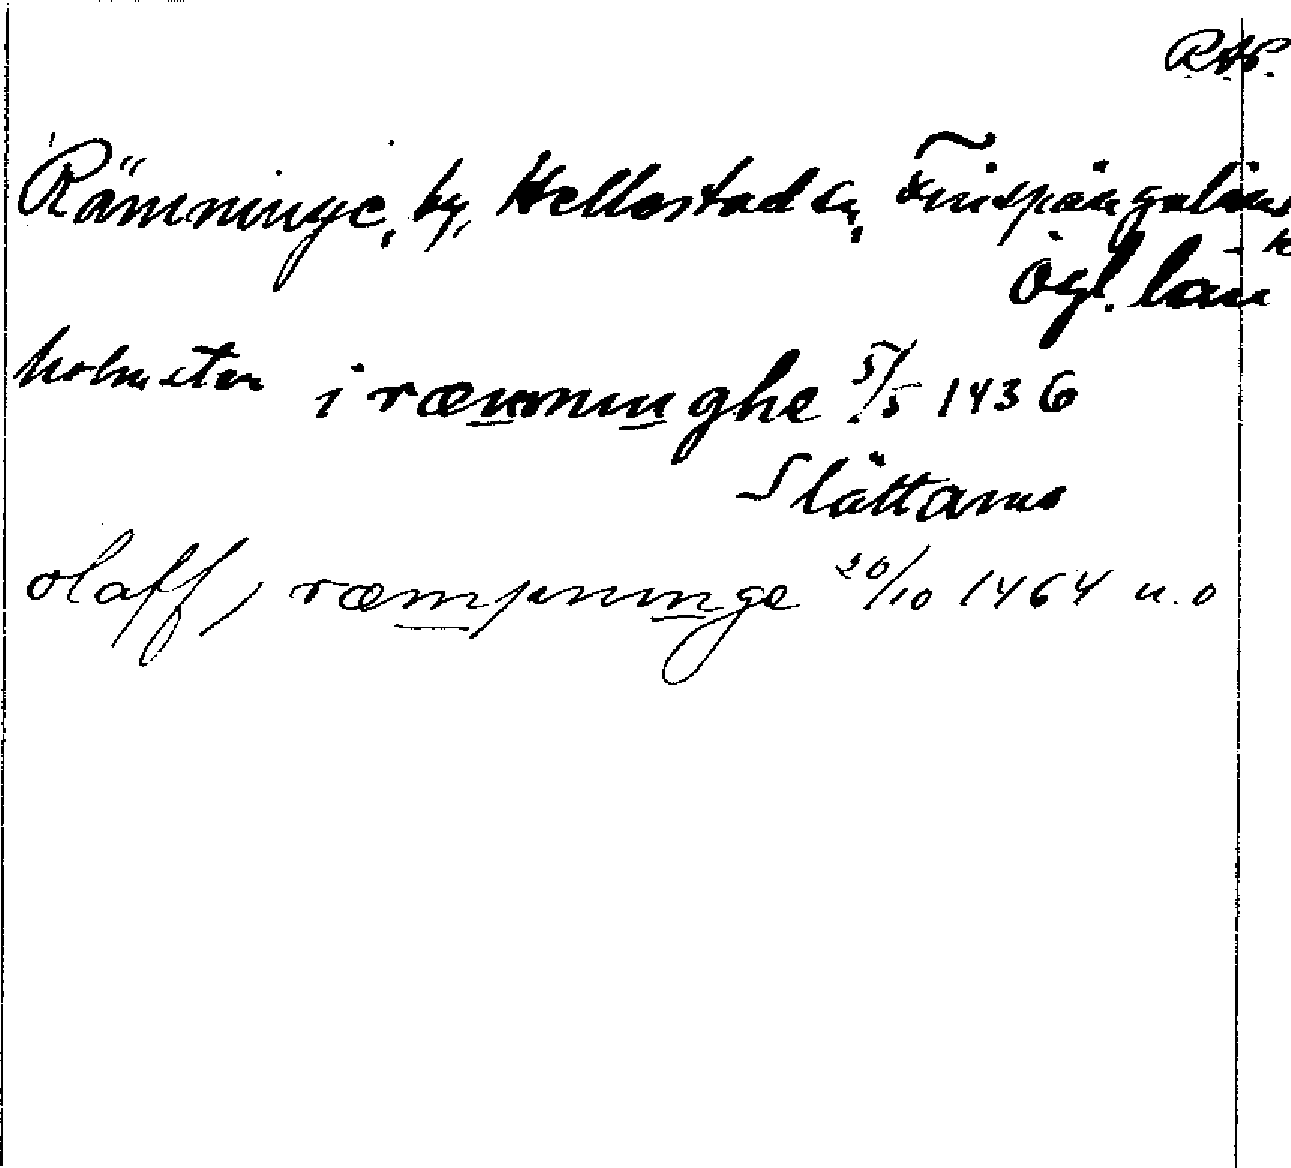 RAP.
Rämninge, by, Hellestad sn, Finspångaläns
h
Ögl. län
holmsten i ræmninghe 5/5 1436
Slättarna
olaff, ræmpninge 20/10 1464 u.o